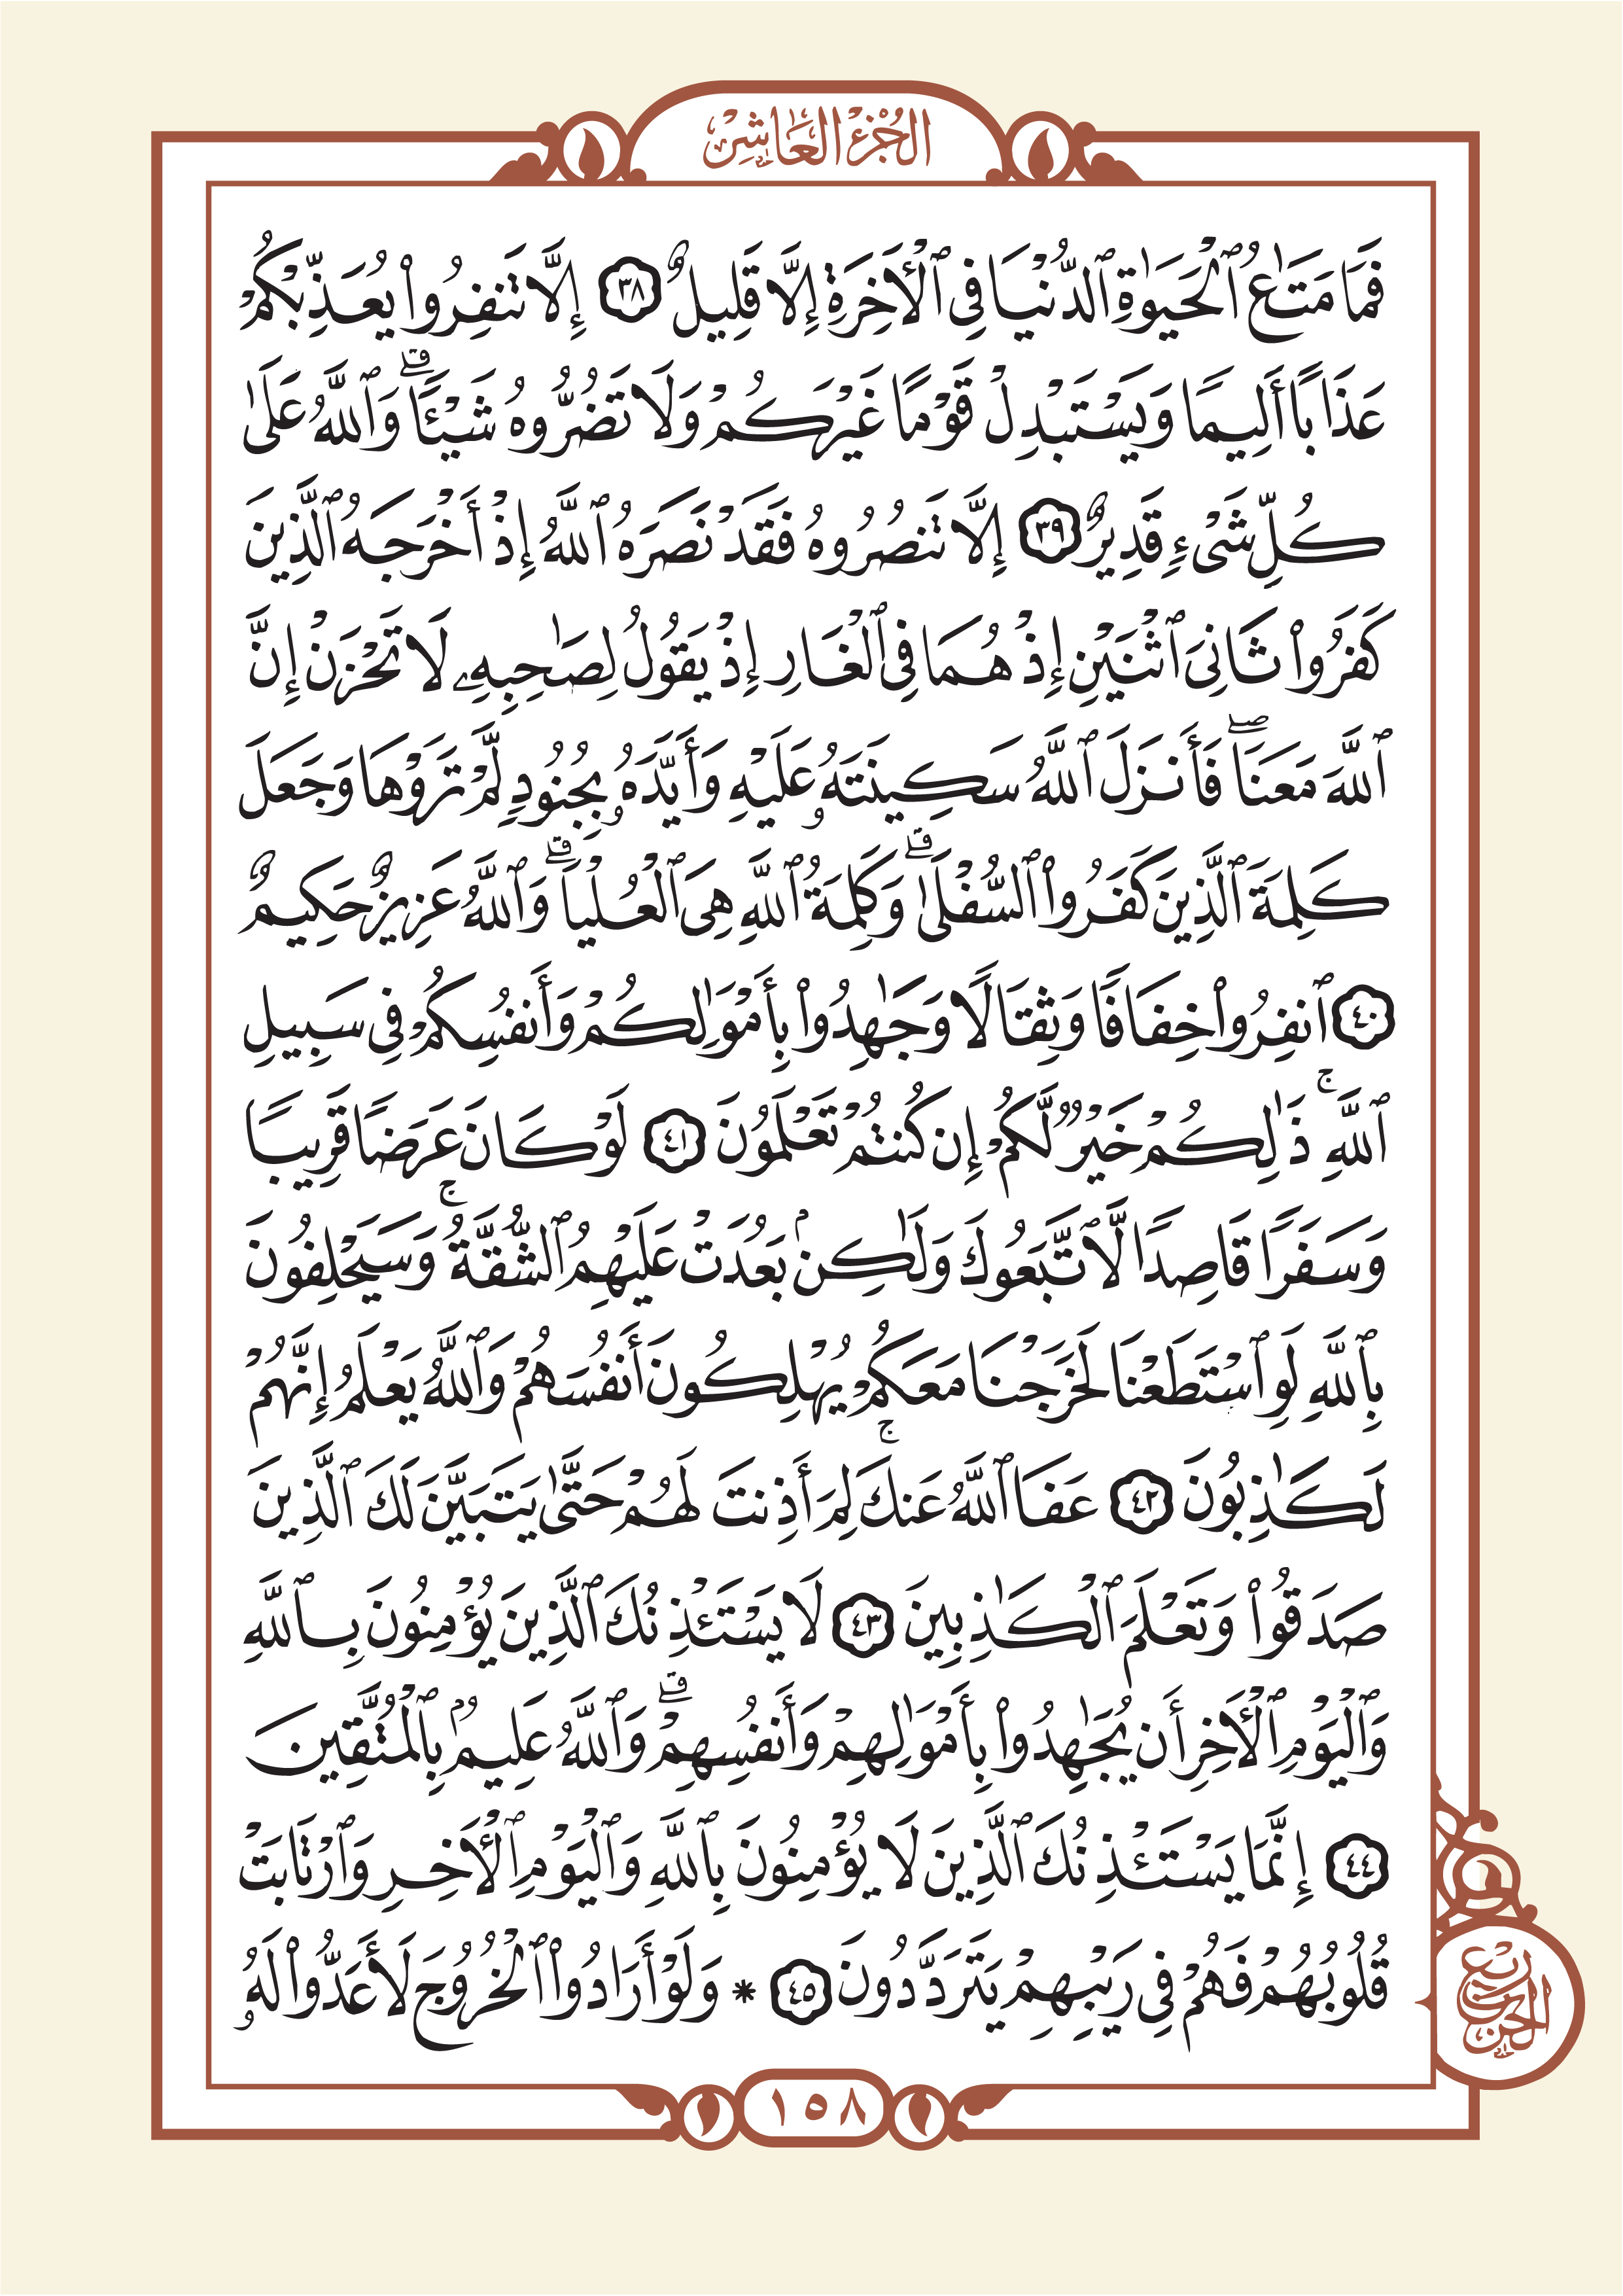 الجُزْءُ العَاشِرُ
فَمَا مَتَٰعُ ٱلْحَيَوٰةِ ٱلدُّنْيَا فِي ٱلْأٓخِرَةِ إِلَّا قَلِيلٌ ٣٨ إِلَّا تَنفِرُواْ يُعَذِّبْكُمْ
عَذَابًا أَلِيمًا وَيَسْتَبْدِلْ قَوْمًا غَيْرَكُمْ وَلَا تَضُرُّوهُ شَيْـًٔاۗ وَٱللَّهُ عَلَىٰ
كُلِّ شَيْءٍ قَدِيرٌ ٣٩ إِلَّا تَنصُرُوهُ فَقَدْ نَصَرَهُ ٱللَّهُ إِذْ أَخْرَجَهُ ٱلَّذِينَ
كَفَرُواْ ثَانِيَ ٱثْنَيْنِ إِذْ هُمَا فِي ٱلْغَارِ إِذْ يَقُولُ لِصَٰحِبِهِۦ لَا تَحْزَنْ إِنَّ
ٱللَّهَ مَعَنَاۖ فَأَنزَلَ ٱللَّهُ سَكِينَتَهُۥ عَلَيْهِ وَأَيَّدَهُۥ بِجُنُودٍ لَّمْ تَرَوْهَا وَجَعَلَ
كَلِمَةَ ٱلَّذِينَ كَفَرُواْ ٱلسُّفْلَىٰۗ وَكَلِمَةُ ٱللَّهِ هِيَ ٱلْعُلْيَاۗ وَٱللَّهُ عَزِيزٌ حَكِيمٌ
٤٠ ٱنفِرُواْ خِفَافًا وَثِقَالًا وَجَٰهِدُواْ بِأَمْوَٰلِكُمْ وَأَنفُسِكُمْ فِي سَبِيلِ
ٱللَّهِۚ ذَٰلِكُمْ خَيْرٌ لَّكُمْ إِن كُنتُمْ تَعْلَمُونَ ٤١ لَوْ كَانَ عَرَضًا قَرِيبًا
وَسَفَرًا قَاصِدًا لَّٱتَّبَعُوكَ وَلَٰكِنۢ بَعُدَتْ عَلَيْهِمُ ٱلشُّقَّةُۚ وَسَيَحْلِفُونَ
بِٱللَّهِ لَوِ ٱسْتَطَعْنَا لَخَرَجْنَا مَعَكُمْ يُهْلِكُونَ أَنفُسَهُمْ وَٱللَّهُ يَعْلَمُ إِنَّهُمْ
لَكَٰذِبُونَ ٤٢ عَفَا ٱللَّهُ عَنكَۚ لِمَ أَذِنتَ لَهُمْ حَتَّىٰ يَتَبَيَّنَ لَكَ ٱلَّذِينَ
صَدَقُواْ وَتَعْلَمَ ٱلْكَٰذِبِينَ ٤٣ لَا يَسْتَـْٔذِنُكَ ٱلَّذِينَ يُؤْمِنُونَ بِٱللَّهِ
وَٱلْيَوْمِ ٱلْأٓخِرِ أَن يُجَٰهِدُواْ بِأَمْوَٰلِهِمْ وَأَنفُسِهِمْۗ وَٱللَّهُ عَلِيمٌۢ بِٱلْمُتَّقِينَ
٤٤ إِنَّمَا يَسْتَـْٔذِنُكَ ٱلَّذِينَ لَا يُؤْمِنُونَ بِٱللَّهِ وَٱلْيَوْمِ ٱلْأٓخِرِ وَٱرْتَابَتْ
قُلُوبُهُمْ فَهُمْ فِي رَيْبِهِمْ يَتَرَدَّدُونَ ٤٥ * وَلَوْ أَرَادُواْ ٱلْخُرُوجَ لَأَعَدُّواْ لَهُۥ
ربع الحزب
١٥٨